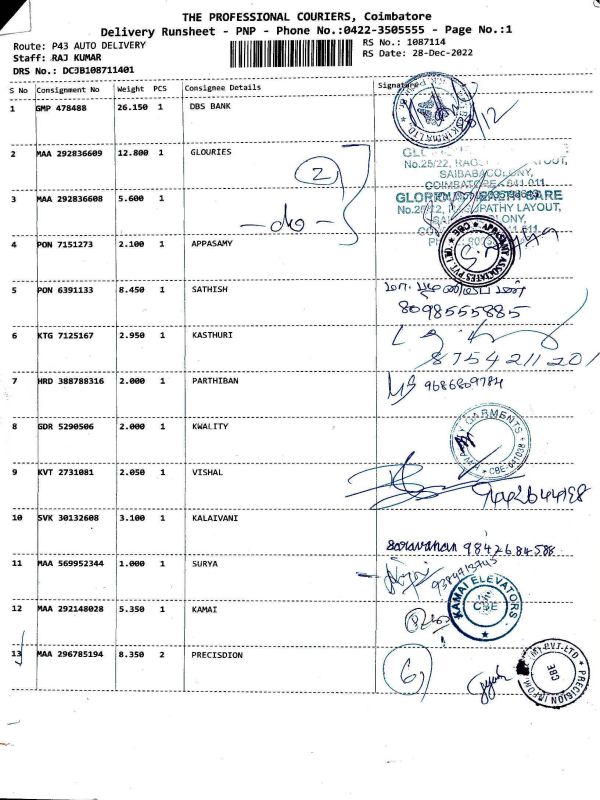 THE PROFESSIONAL COURIERS, Coimbatore
Delivery Runsheet - PNP - Phone No.:0422-3505555 - Page No.:1
Route: P43 AUTO DELIVERY
RS No.: 1087114
Staff: RAJ KUMAR
RS Date: 28-Dec-2022
DRS No.: DCJB108711401
S No Consignment No Weight PCS Consignee Details Signature
1 GMP 478488 26.150 1 DBS BANK
2 MAA 292836609 12.800 1 GLOURIES
No.25/22,
SAIBABACOLONY,
COIMBATORE - 641 011
2
3 MAA 292836608 5.600 1
-do-
4 PON 7151273 2.100 1 APPASAMY
APPASAMY ASSOCIATES PVT. LTD. CBE
5 PON 6391133 8.450 1 SATHISH
8098555885
6 KTG 7125167 2.950 1 KASTHURI
8754211201
7 HRD 388788316 2.000 1 PARTHIBAN
9686809784
8 GDR 5290506 2.000 1 KWALITY
GARMENTS
9 KVT 2731081 2.050 1 VISHAL
10 SVK 30132608 3.100 1 KALAIVANI
Saravanan 9842684588
11 MAA 569952344 1.000 1 SURYA
12 MAA 292148028 5.350 1 KAMAI
KAMAI ELEVATORS CBE
13 MAA 296785194 8.350 2 PRECISDION
6
CBE